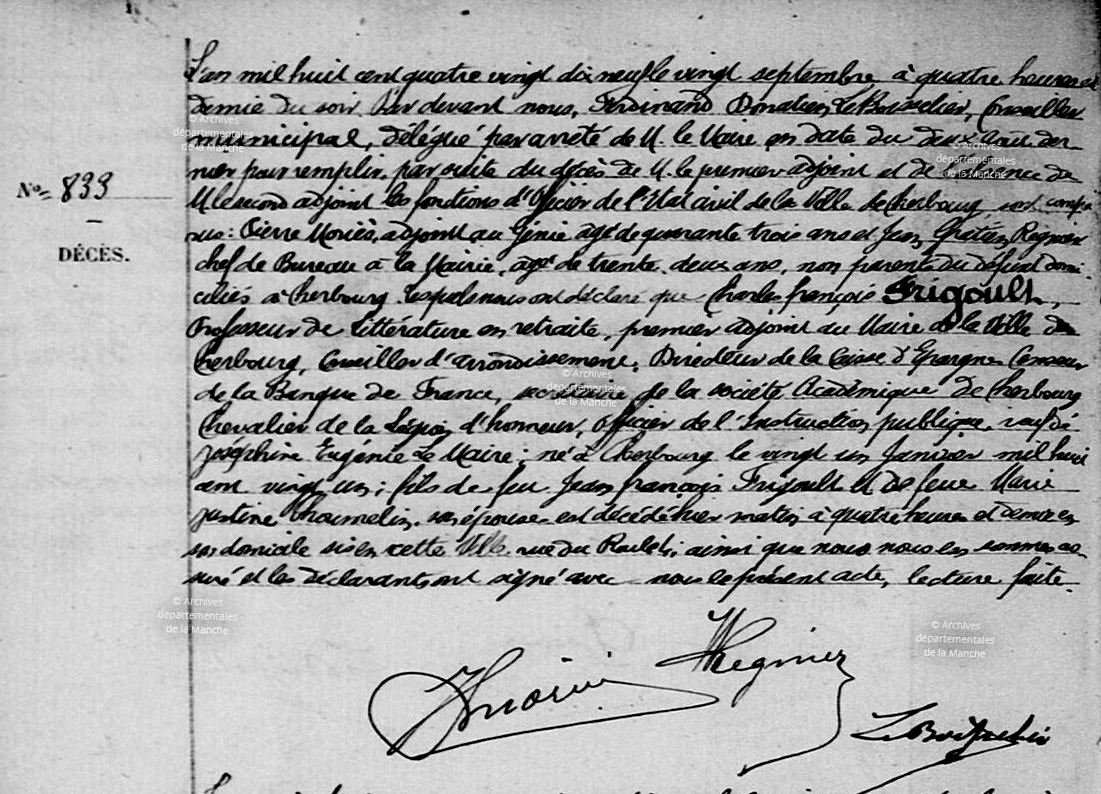 L'an mil huit cent quatre vingt dix neuf le vingt septembre à quatre heures et
demie du soir Par devant nous, Ferdinand Donatien Le Boisselier, Conseiller
municipal, délégué par arrêté de M. le Maire en date du deux Août der
nier pour remplir, par suite du décès de M. le premier adjoint et de l'absence de
M. le second adjoint les fonctions d'Officier de l'Etat civil de la Ville de Cherbourg, sont compa
Nº 833
rus: Pierre Moriès, adjoint au Génie âgé de quarante trois ans et Jean Gratien Regnier
DÉCÈS.
chef de Bureau à la Mairie, âgé de trente deux ans, non parents du défunt domi
ciliés à Cherbourg lesquels nous ont déclaré que Charles françois Frigoult,
Professeur de littérature en retraite, premier adjoint au Maire de la Ville de
Cherbourg, Conseiller d'arrondissement, Directeur de la Caisse d'Epargne Censeur
de la Banque de France, secrétaire de la société Académique de Cherbourg
Chevalier de la Légion d'honneur, Officier de l'Instruction publique, veuf de
Joséphine Eugénie Le Maire; né à Cherbourg le vingt un Janvier mil huit
cent vingt un; fils de feu Jean françois Frigoult et de feue Marie
Justine son épouse est décédé hier matin à quatre heures et demie en
son domicile sis en cette Ville rue du ainsi que nous nous en sommes as-
suré et les déclarants ont signé avec nous le présent acte, lecture faite.
Regnier
Le Boisselier
© Archives
départementales
de la Manche
© Archives
départementales
de la Manche
© Archives
départementales
de la Manche
© Archives
départementales
de la Manche
© Archives
départementales
de la Manche